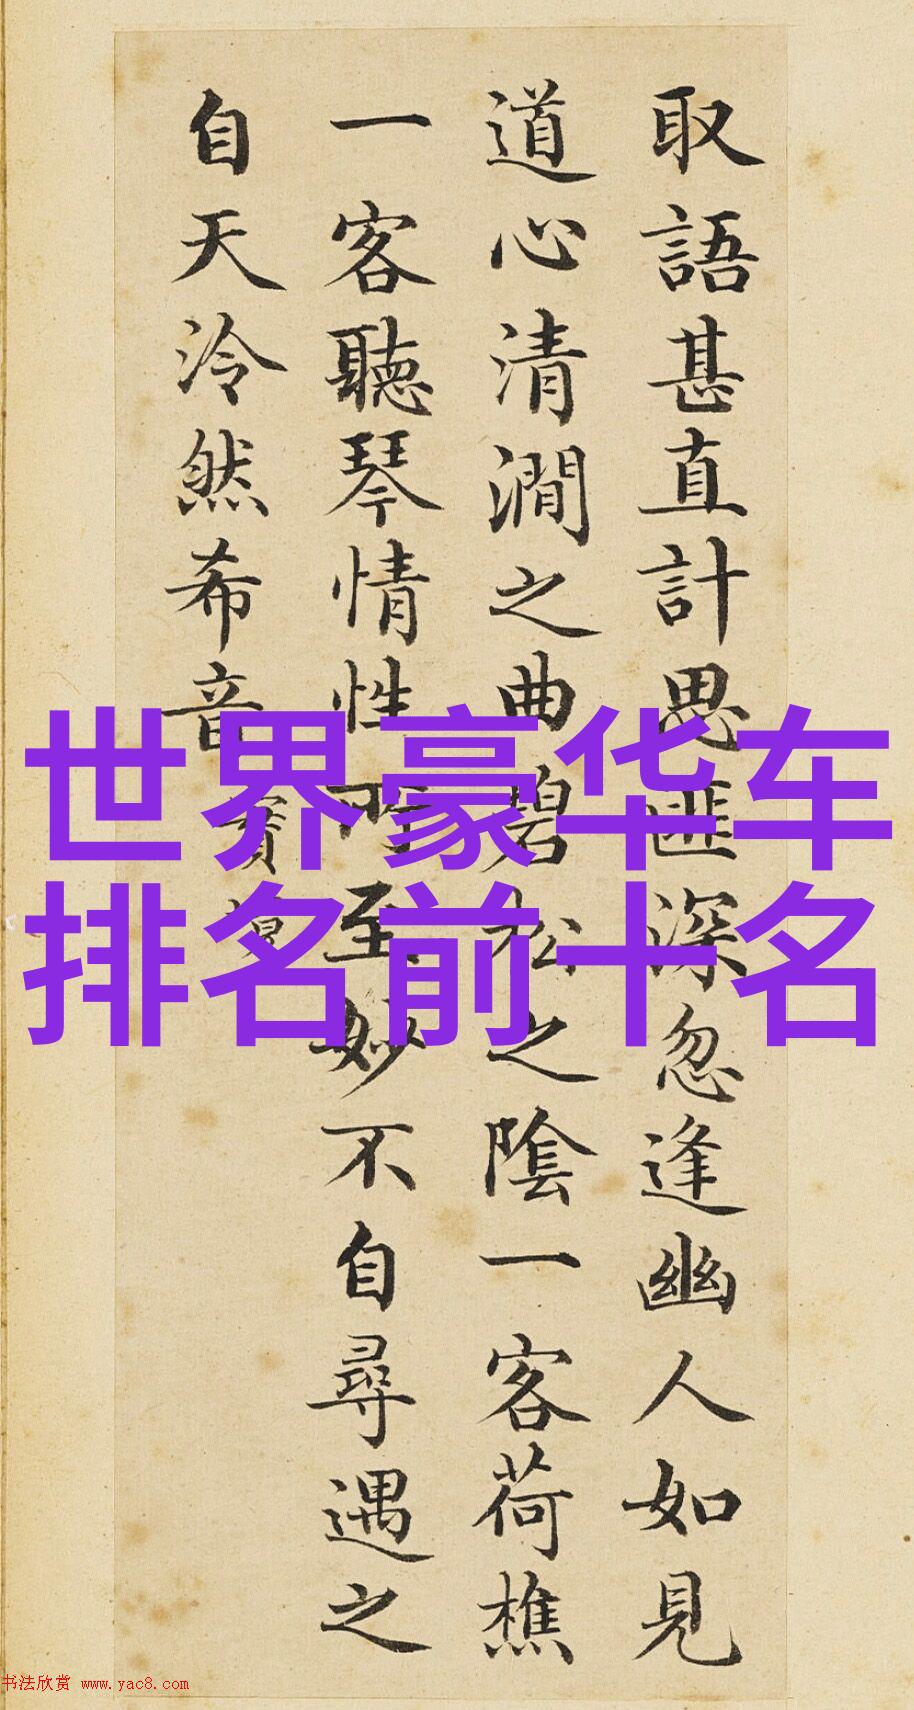 取語甚直計思匪深忽逢幽人如見
道心清澗之曲碧松之陰一客荷樵
一客聽琴情性所至妙不自尋遇之
自天泠然希音 實
世界豪华车
排名前十名
书法欣赏 www.yac8.com